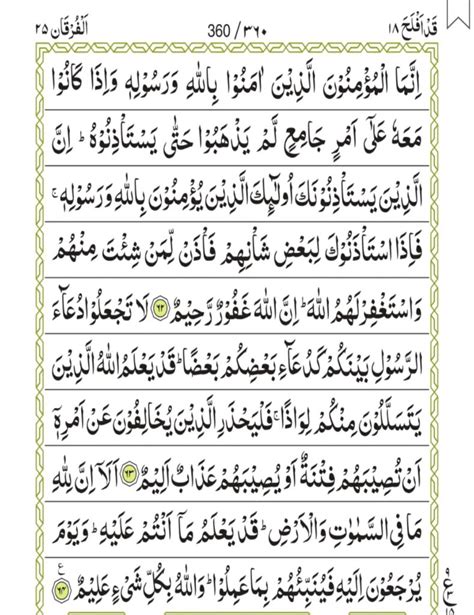 قَدۡ اَفۡلَحَ ١٨ 360 / ٣٦٠ اَلۡفُرۡقَان ٢٥
اِنَّمَا الۡمُؤۡمِنُوۡنَ الَّذِيۡنَ اٰمَنُوۡا بِاللّٰهِ وَرَسُوۡلِهٖ وَاِذَا كَانُوۡا
مَعَهٗ عَلٰٓى اَمۡرٍ جَامِعٍ لَّمۡ يَذۡهَبُوۡا حَتّٰى يَسۡتَاۡذِنُوۡهُ‌ؕ اِنَّ
الَّذِيۡنَ يَسۡتَاۡذِنُوۡنَكَ اُولٰٓٮِٕكَ الَّذِيۡنَ يُؤۡمِنُوۡنَ بِاللّٰهِ وَرَسُوۡلِهٖ‌ۚ
فَاِذَا اسۡتَاۡذَنُوۡكَ لِبَعۡضِ شَاۡنِهِمۡ فَاۡذَنۡ لِّمَنۡ شِئۡتَ مِنۡهُمۡ
وَاسۡتَغۡفِرۡ لَهُمُ اللّٰهَ‌ؕ اِنَّ اللّٰهَ غَفُوۡرٌ رَّحِيۡمٌ ٦٢ لَا تَجۡعَلُوۡا دُعَآءَ
الرَّسُوۡلِ بَيۡنَكُمۡ كَدُعَآءِ بَعۡضِكُمۡ بَعۡضًا‌ؕ قَدۡ يَعۡلَمُ اللّٰهُ الَّذِيۡنَ
يَتَسَلَّلُوۡنَ مِنۡكُمۡ لِوَاذًا‌ۚ فَلۡيَحۡذَرِ الَّذِيۡنَ يُخَالِفُوۡنَ عَنۡ اَمۡرِهٖۤ
اَنۡ تُصِيۡبَهُمۡ فِتۡنَةٌ اَوۡ يُصِيۡبَهُمۡ عَذَابٌ اَلِيۡمٌ ٦٣ اَلَاۤ اِنَّ لِلّٰهِ
مَا فِى السَّمٰوٰتِ وَالۡاَرۡضِ‌ؕ قَدۡ يَعۡلَمُ مَاۤ اَنۡتُمۡ عَلَيۡهِؕ وَيَوۡمَ
يُرۡجَعُوۡنَ اِلَيۡهِ فَيُنَبِّئُهُمۡ بِمَا عَمِلُوۡا‌ؕ وَاللّٰهُ بِكُلِّ شَىۡءٍ عَلِيۡمٌ ٦٤
ع